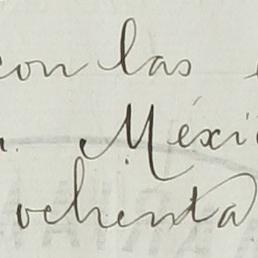 con las
Méxi
ochenta